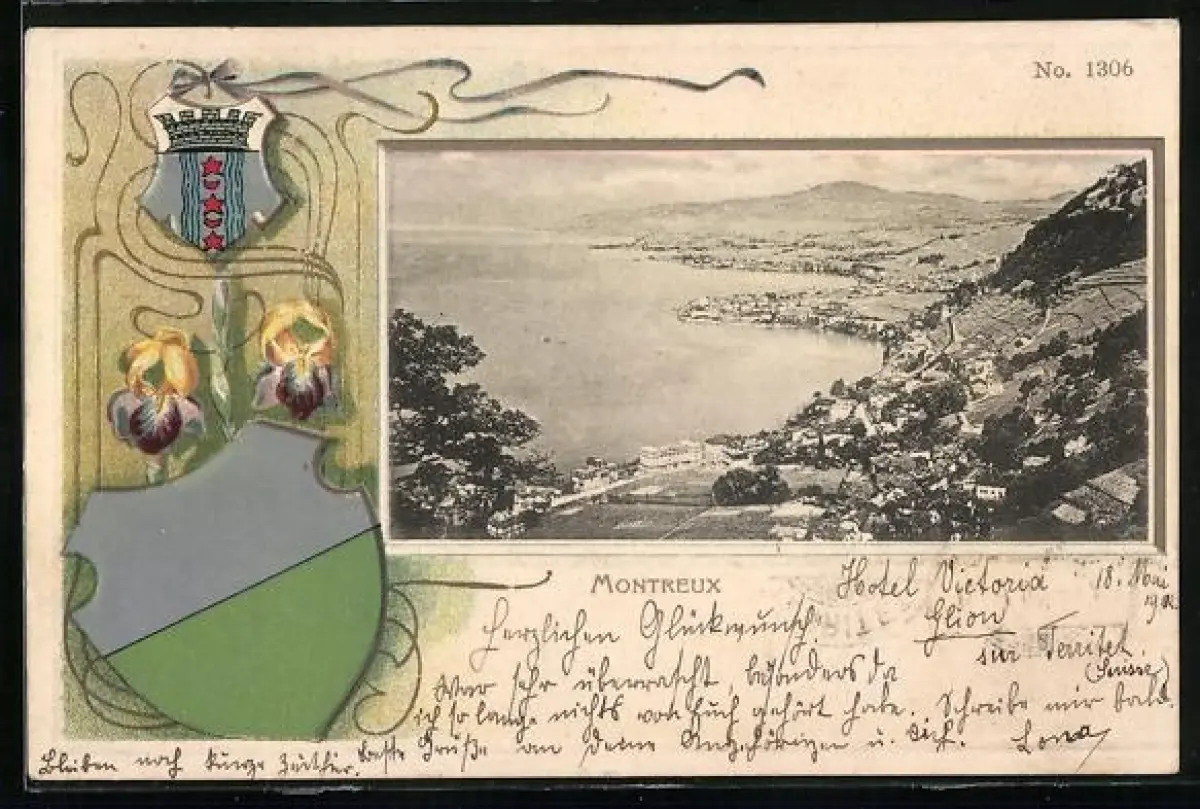 No. 1306
MONTREUX
Hotel Victoria 18. Mai
Glion
sur Territet.
(Suisse)
Herzlichen Glückwunsch.
War sehr überrascht, besonders da
ich so lange nichts von Euch gehört habe. Schreibe mir bald.
Beste Grüße an Deine Angehörigen u. Dich. Lona
Bleiben noch kurze Zeit hier.